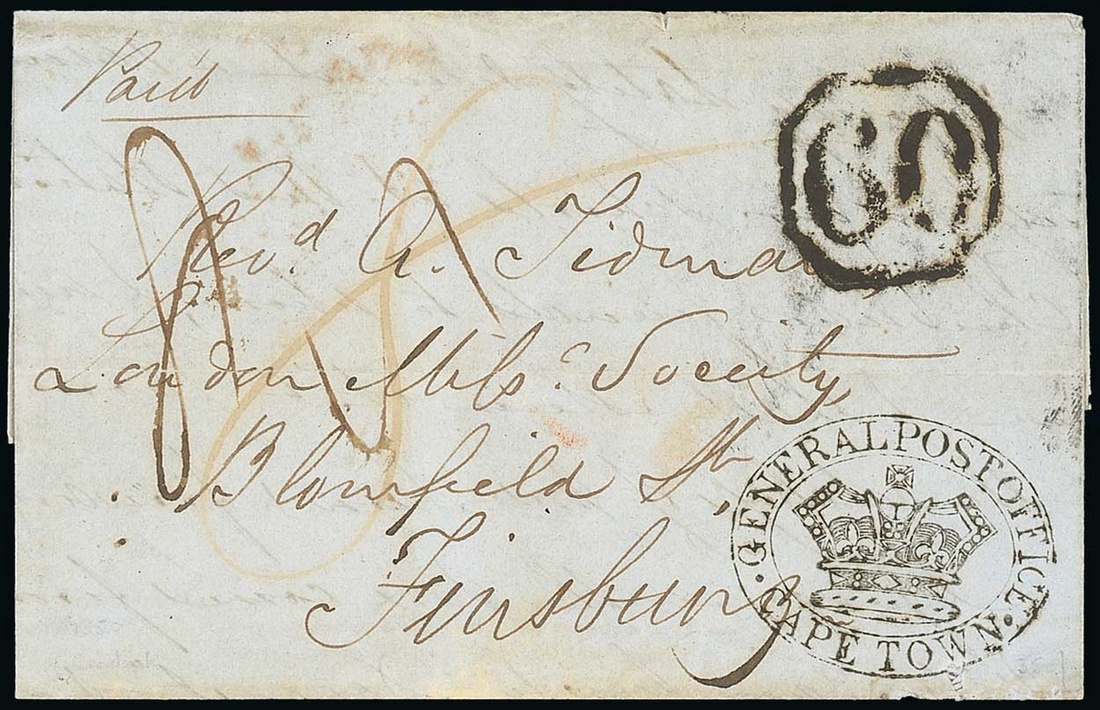 Paid
60
Revd. A. Tidman
London Missy. Society
Blomfield St.
Finsbury
GENERAL POST OFFICE
CAPE TOWN